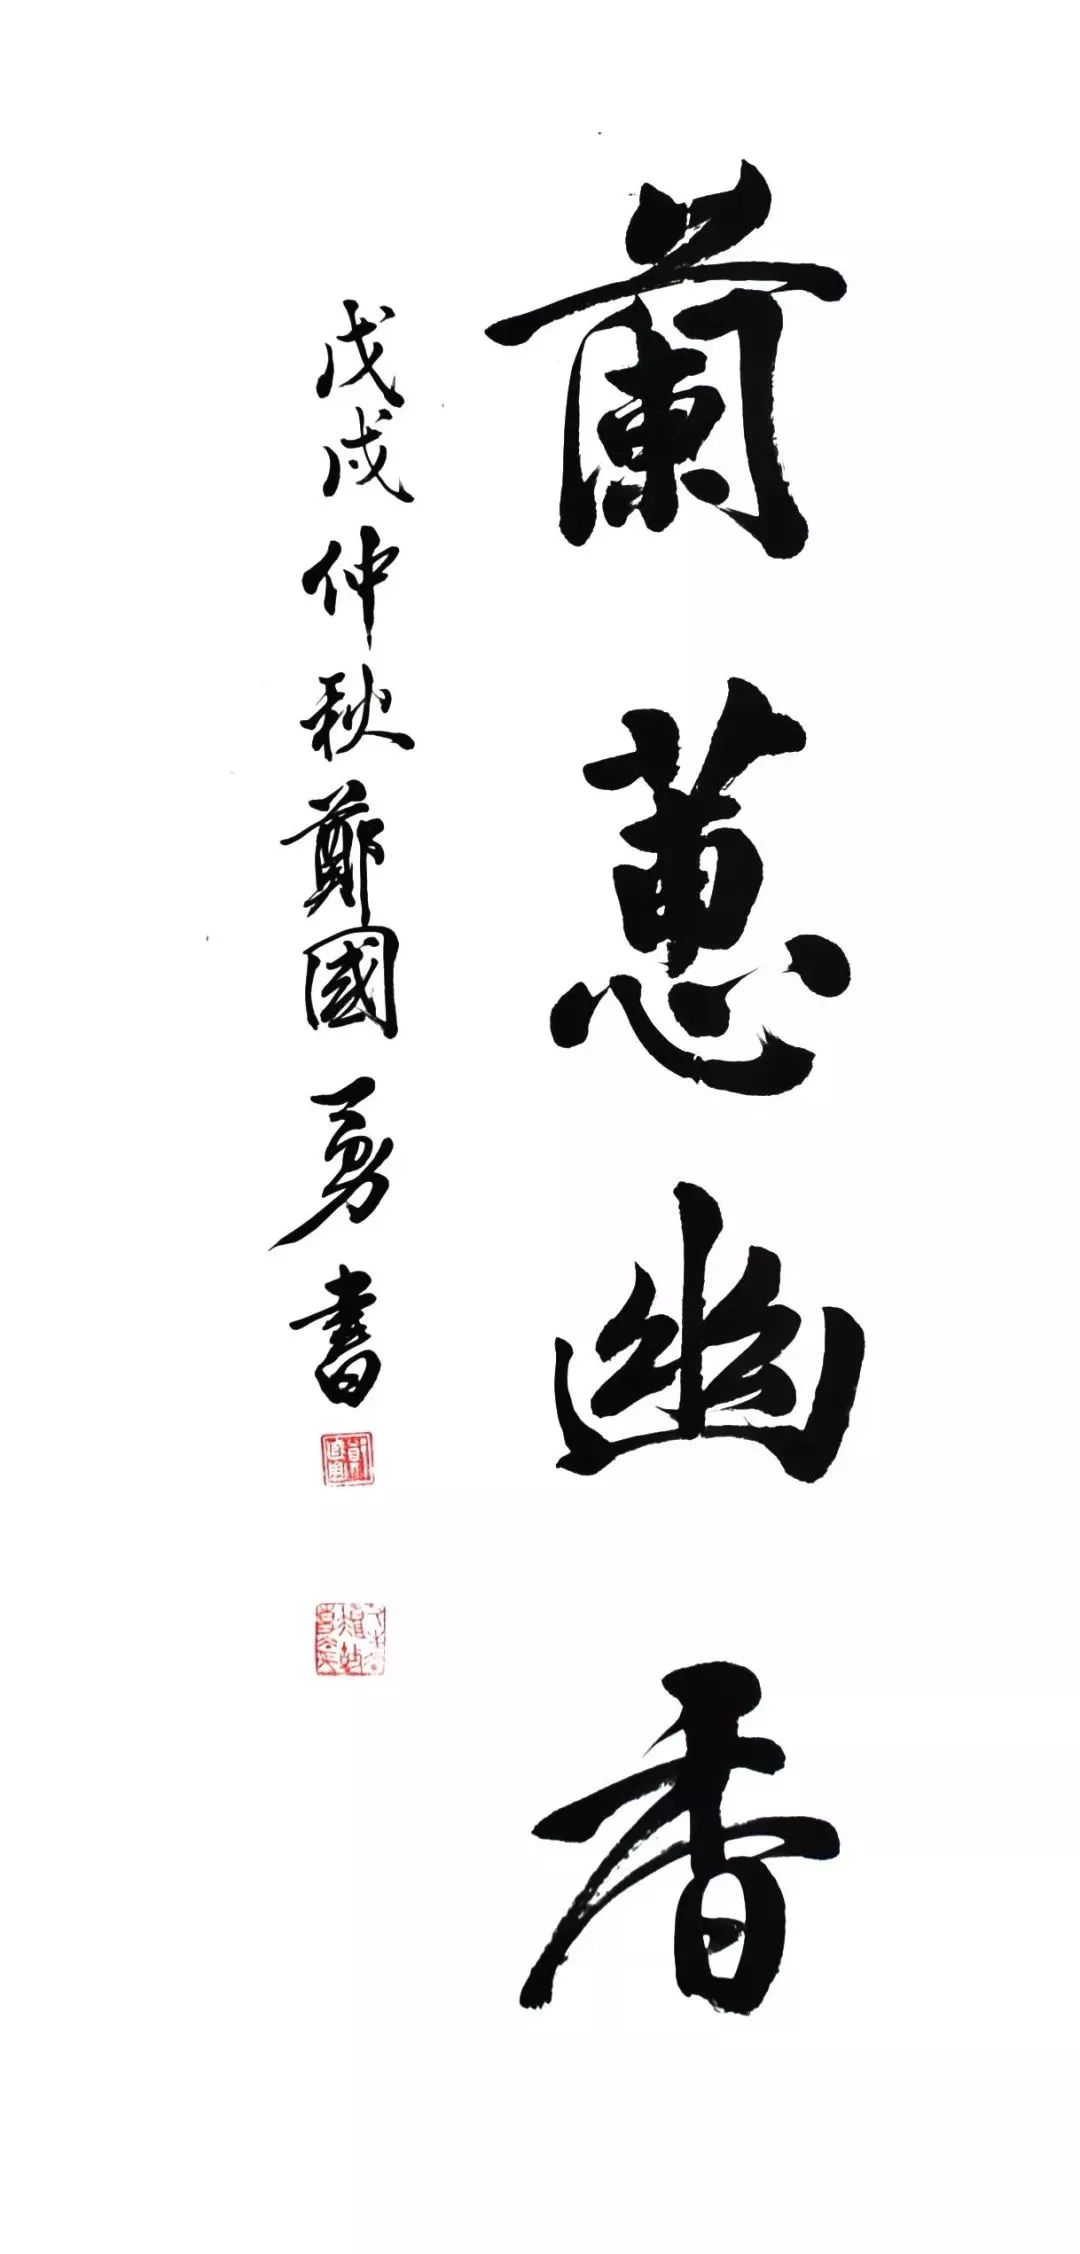 蘭蕙幽香
戊戌仲秋鄭國勇書